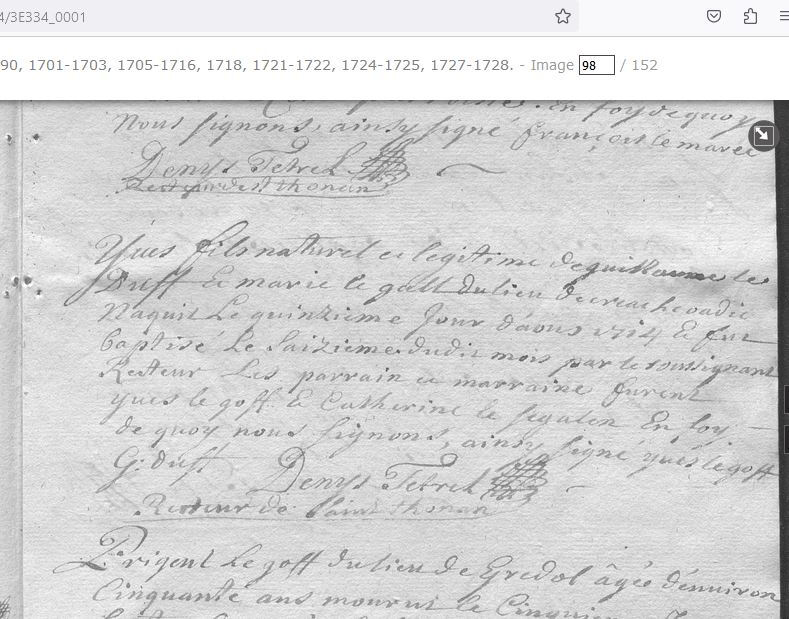 4/3E334_0001
90, 1701-1703, 1705-1716, 1718, 1721-1722, 1724-1725, 1727-1728. - Image 98 / 152
En foy de quoy
Nous signons, ainsy signé françois le marec
Denys Tetrel
Recteur de st thonan
Yues fils naturel et legitime de guillaume le
Duff Et marie le gall du lieu de
Naquit Le quinzieme Jour d'aous 1714 Et fut
baptisé Le Saizieme dudit mois par le soussignant
Recteur Les parrain et marraine furent
yues le goff Et Catherine le segalen En foy
de quoy nous signons, ainsy signé yues le goff
G: duff Denys Tetrel
Recteur de Saint thonan
Prigent Le goff du lieu de Gredol âgée d'enuiron
Cinquante ans mourut le Cinquiem